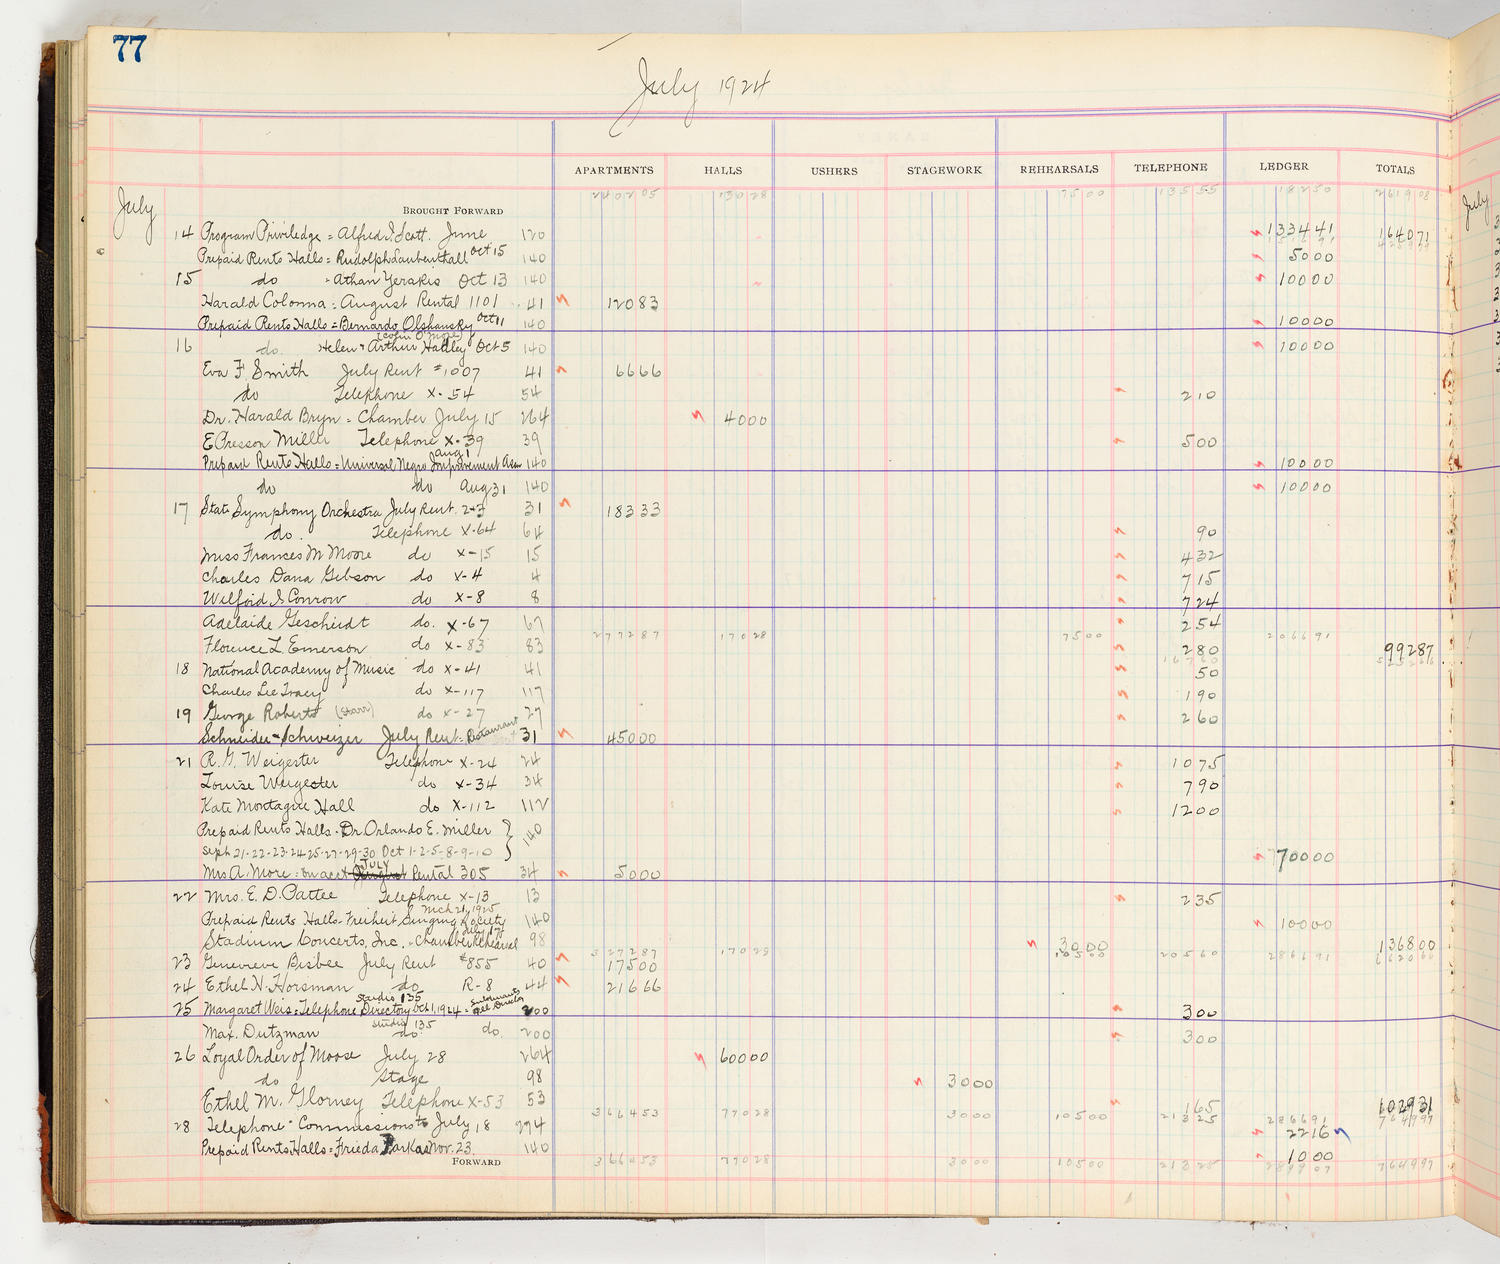 77
July 1924
APARTMENTS HALLS USHERS STAGEWORK REHEARSALS TELEPHONE LEDGER TOTALS
July BROUGHT FORWARD 240205 13028 7500 13555 18250
14 Program Priviledge = Alfred Scott. June 120 133441 164071
Prepaid Rents Halls = Rudolph Laubenthall Oct 15 140 5000
15 do - Athan Yerakis Oct 13 140 10000
Harald Colonna = August Rental 1101 41 12083
Prepaid Rents Halls = Bernardo Olshansky Oct 11 140 10000
(Colin O'More)
16 do. Helen = Arthur Hadley Oct 5 140 10000
Eva F. Smith July Rent #1007 41 6666
do Telephone X-54 54 210
Dr. Harald Bryn = Chamber July 15 264 4000
E Presson Miller Telephone X-39 39 500
Aug 1
Prepaid Rents Halls = Universal Negro Improvement Assn 140 10000
do do Aug 31 140 10000
17 State Symphony Orchestra July Rent. 2+3 31 18333
do. Telephone X-64 64 90
Miss Frances M Moore do X-15 15 432
Charles Dana Gibson do X-4 4 715
Wilford S Conrow do X-8 8 724
Adelaide Gescheidt do. X-67 67 254
277287 17028 7500 206691
Florence L. Emerson do X-83 83 280 99287
18 National Academy of Music do X-41 41 50
Charles Lee Tracy do X-117 117 190
19 George Roberts (Starr) do X-27 27 260
Schneider = Schweizer July Rent = Restaurant 31 45000
21 R. G. Weigester Telephone X-24 24 1075
Louise Weigester do X-34 34 790
Kate Montague Hall do X-112 112 1200
Prepaid Rents Halls - Dr. Orlando E. Miller } 140
Sept 21-22-23-24-25-27-29-30 Oct 1-2-5-8-9-10 70000
JULY
Mrs A. More = on acct August Rental 305 34 5000
22 Mrs. E. D. Pattee Telephone X-13 13 235
Mch 21, 1925
Prepaid Rents Halls - Freiheit Singing Society 140 10000
July 17
Stadium Concerts, Inc. - Chamber Rehearsal 98 3000 136800
327287 17028 10500 20560 286691 662066
23 Genevieve Bisbee July Rent #855 40 17500
24 Ethel N. Horsman do R-8 44 21666
Studio 135
25 Margaret Weis = Telephone Directory Oct 1, 1924 = 200 300
Studio 135
Max. Dutzman do do. 200 300
26 Loyal Order of Moose July 28 264 60000
do Stage 98 3000
Ethel M. Glorney Telephone X-53 53 165 102931
366453 77028 3000 10500 21325 286691 764997
28 Telephone - Commissions to July 18 294 2216
Prepaid Rents Halls = Frieda Nov. 23. 140 1000
FORWARD 366453 77028 3000 10500 21325 289907 764997
July